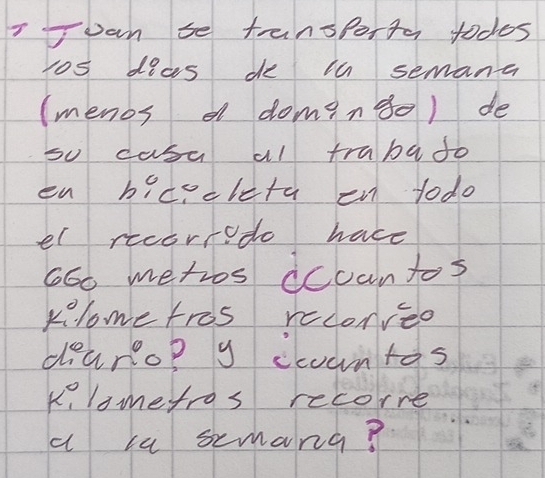 Juan se transporta todos
los dias de la semana
(menos el domingo) de
su casa al trabajo
en bicicleta en todo
el recorrido hace
660 metros ¿Cuantos
Kilometros recorrio
diario? y ¿cuantos
Kilometros recorre
a la semana?